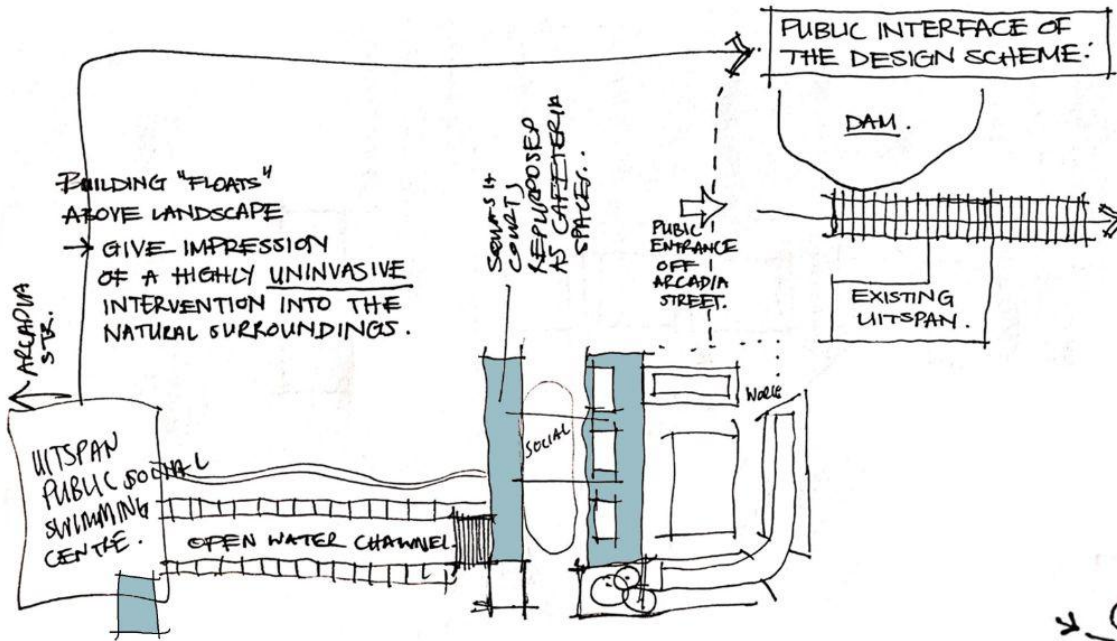 PUBLIC INTERFACE OF
THE DESIGN SCHEME:
DAM.
BUILDING "FLOATS"
ABOVE LANDSCAPE
→ GIVE IMPRESSION
OF A HIGHLY UNINVASIVE
INTERVENTION INTO THE
NATURAL SURROUNDINGS.
SQUASH
COURTS
REPURPOSED
AS CAFETERIA
SPACES..
PUBLIC
ENTRANCE
OFF
ARCADIA
STREET.
EXISTING
UITSPAN.
ARCADIA
STR.
UITSPAN
PUBLIC SOCIAL
SWIMMING
CENTRE.
OPEN WATER CHANNEL.
SOCIAL
WORK